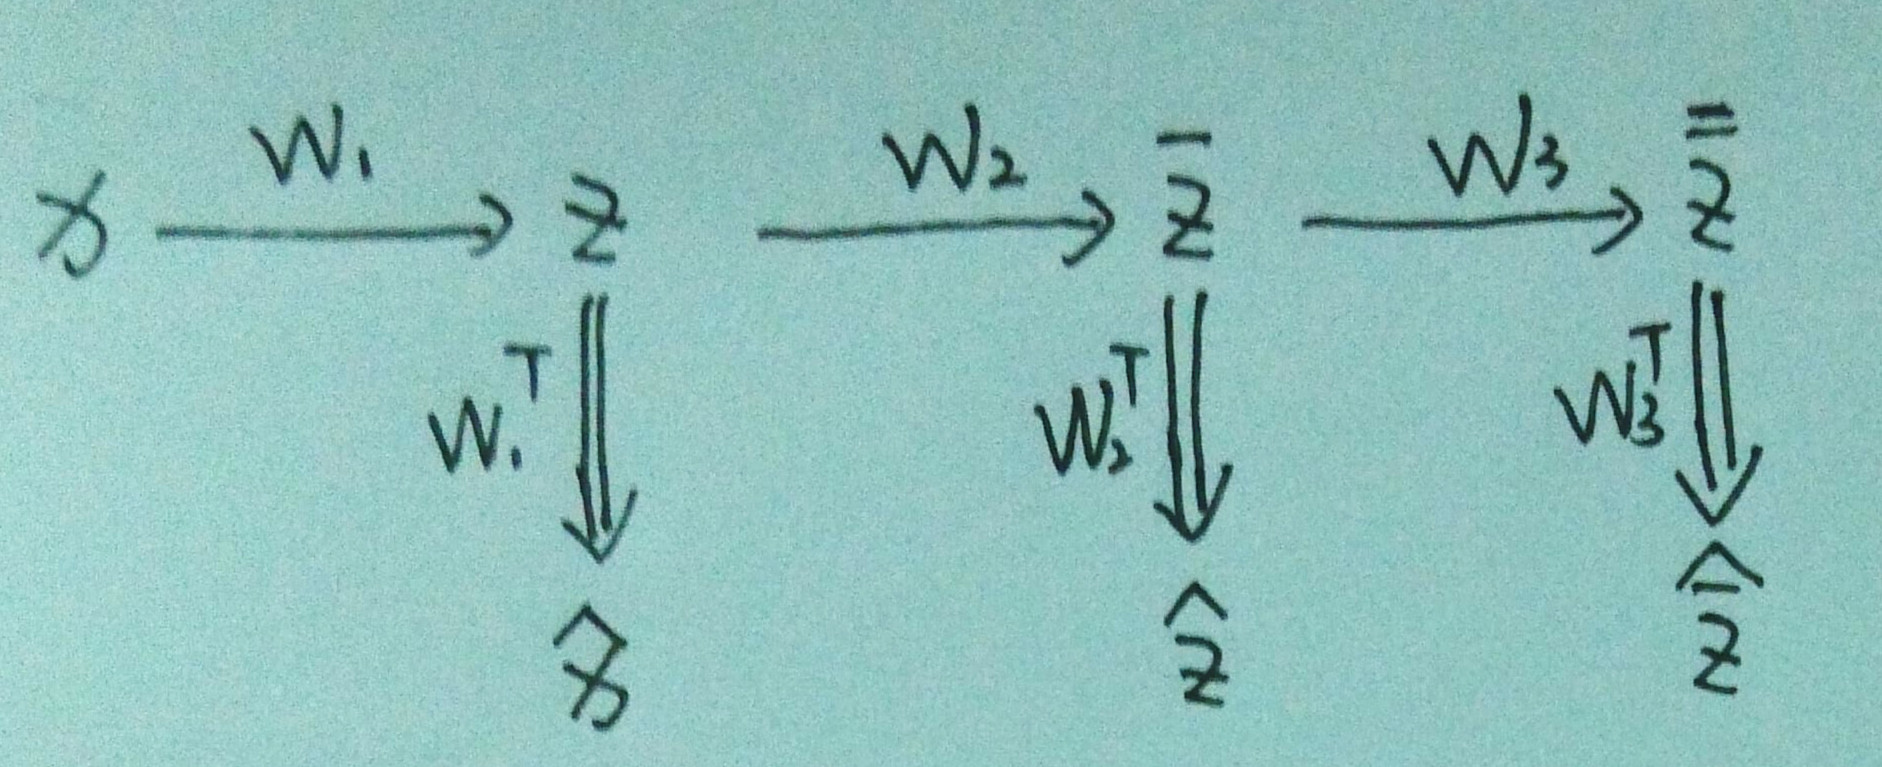 x W₁ → z W₂ → z̄ W₃ → z̿
W₁ᵀ ⇓ W₂ᵀ ⇓ W₃ᵀ ⇓
x̂ ẑ z̄̂